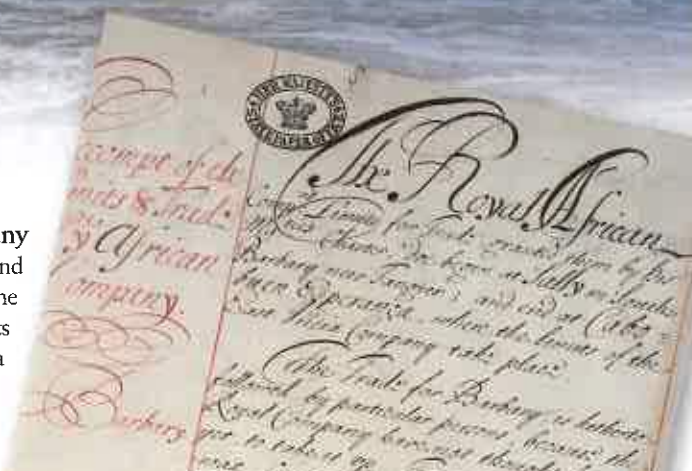 any
nd
ne
ts
a
HER MAJESTY'S
STATE PAPER OFFICE
ccompt of the
mits & Trade
y African
Company.
Barbary
The Royal African
Comp: Limits for Trade granted them by his
Majties Charter Doe begin at Sally in South
Barbary near Tangier, and end at Cabo
buen Esperanza, where the limits of the
East India Company take place.
The Trade for Barbary is hitherto
followed by particular persons because the
Royal Company have not thought